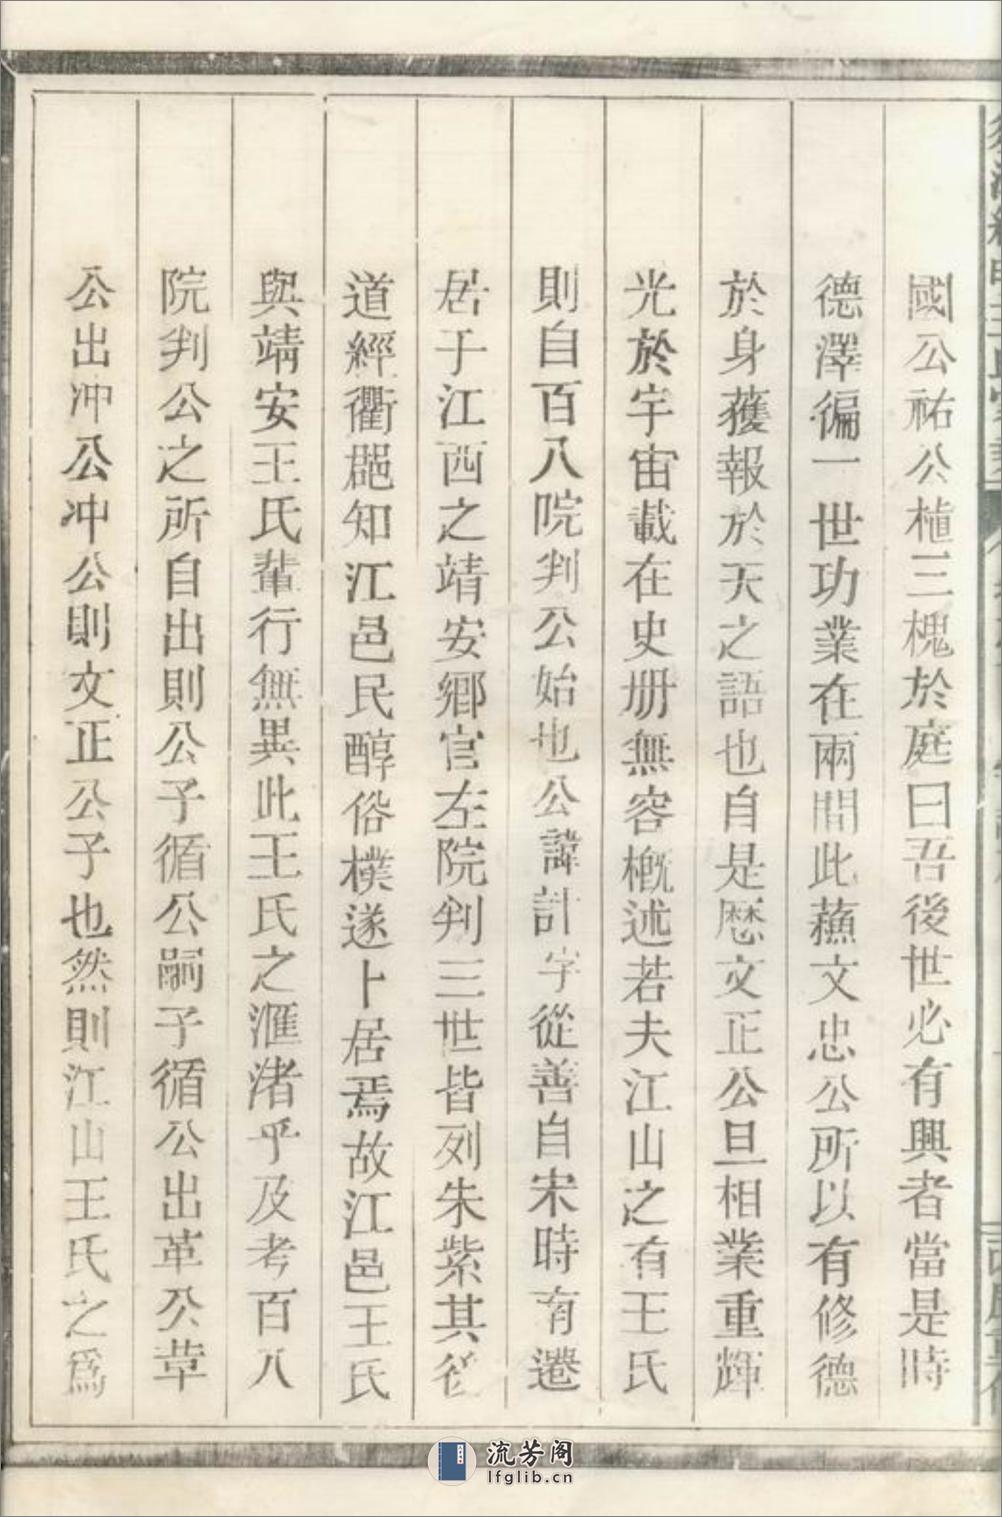 國公祐公植三槐於庭曰吾後世必有興者當是時
德澤徧一世功業在兩間此蘓文忠公所以有修德
於身獲報於天之語也自是厯文正公旦相業重輝
光於宇宙載在史册無容槪述若夫江山之有王氏
則自百八院判公始也公諱計字從善自宋時有遷
居于江西之靖安鄉官左院判三世皆列朱紫其後
道經衢郡知江邑民醇俗樸遂卜居焉故江邑王氏
與靖安王氏輩行無異此王氏之滙渚乎及考百八
院判公之所自出則公子循公嗣子循公出革公革
公出冲公冲公則文正公子也然則江山王氏之爲
流芳阁
lfglib.cn